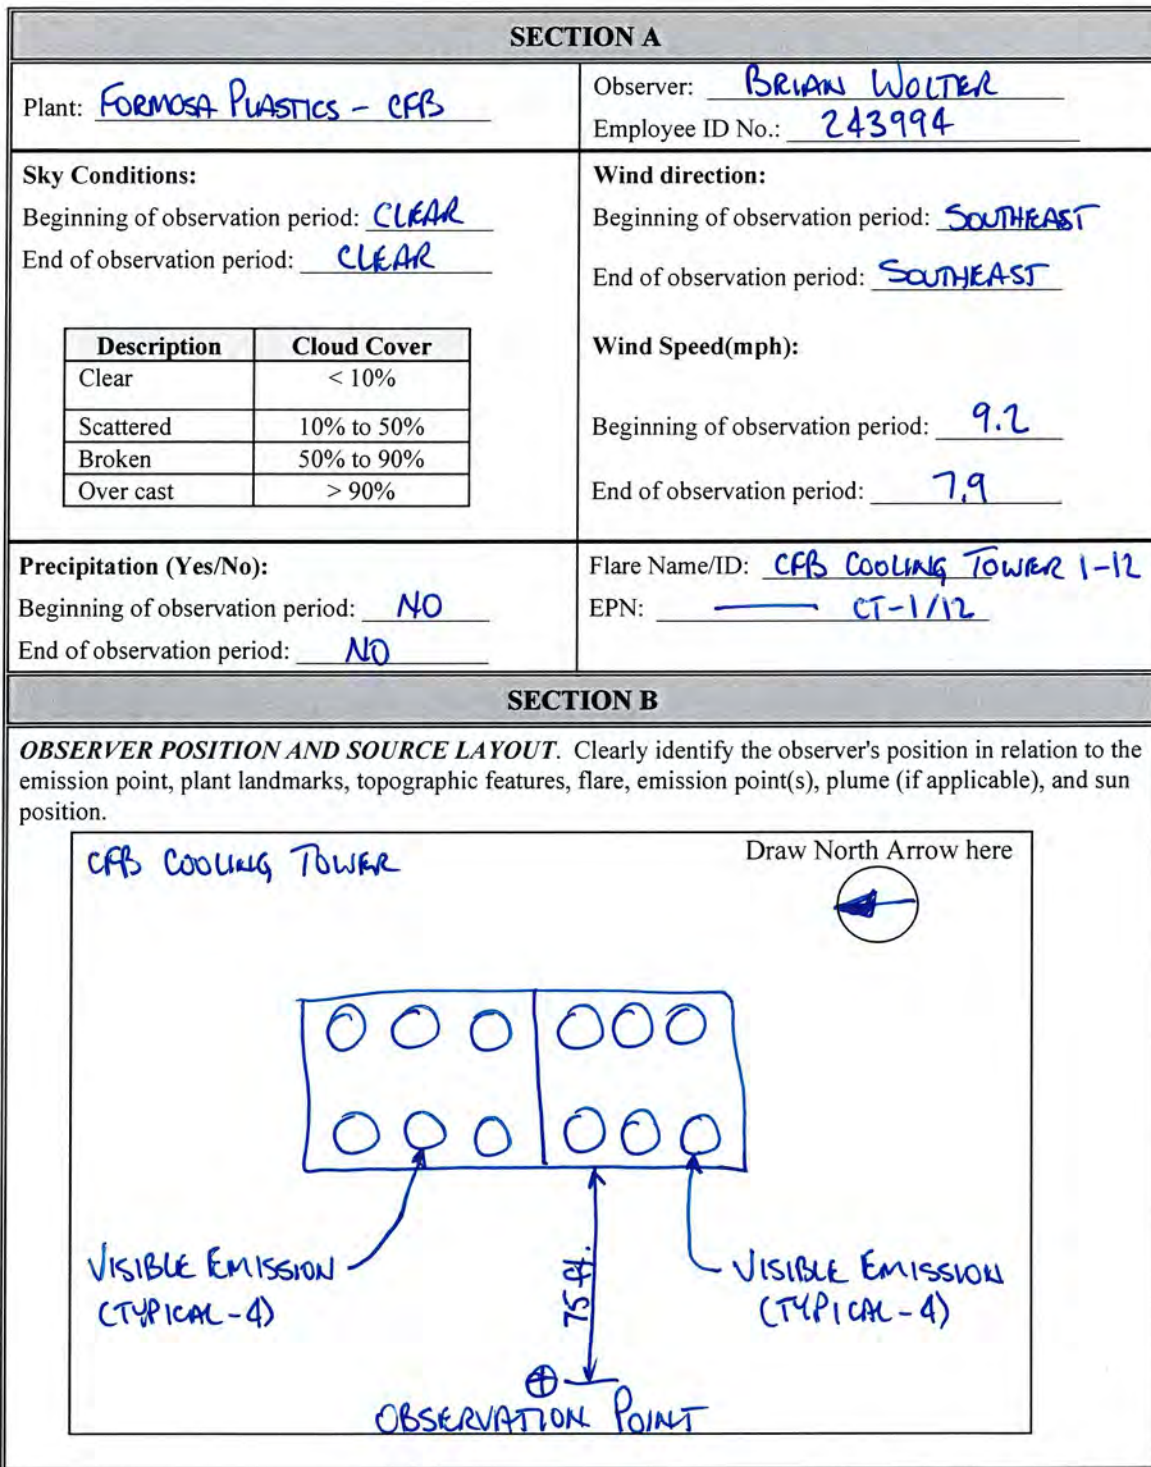 SECTION A
Plant: FORMOSA PLASTICS - CFB
Observer: BRIAN WOLTER
Employee ID No.: 243994
Sky Conditions:
Beginning of observation period: CLEAR
End of observation period: CLEAR
Description Cloud Cover
Clear < 10%
Scattered 10% to 50%
Broken 50% to 90%
Over cast > 90%
Wind direction:
Beginning of observation period: SOUTHEAST
End of observation period: SOUTHEAST
Wind Speed(mph):
Beginning of observation period: 9.2
End of observation period: 7.9
Precipitation (Yes/No):
Beginning of observation period: NO
End of observation period: NO
Flare Name/ID: CFB COOLING TOWER 1-12
EPN: CT-1/12
SECTION B
OBSERVER POSITION AND SOURCE LAYOUT. Clearly identify the observer's position in relation to the
emission point, plant landmarks, topographic features, flare, emission point(s), plume (if applicable), and sun
position.
CFB COOLING TOWER
Draw North Arrow here
VISIBLE EMISSION
(TYPICAL-4)
75 ft.
VISIBLE EMISSION
(TYPICAL-4)
OBSERVATION POINT